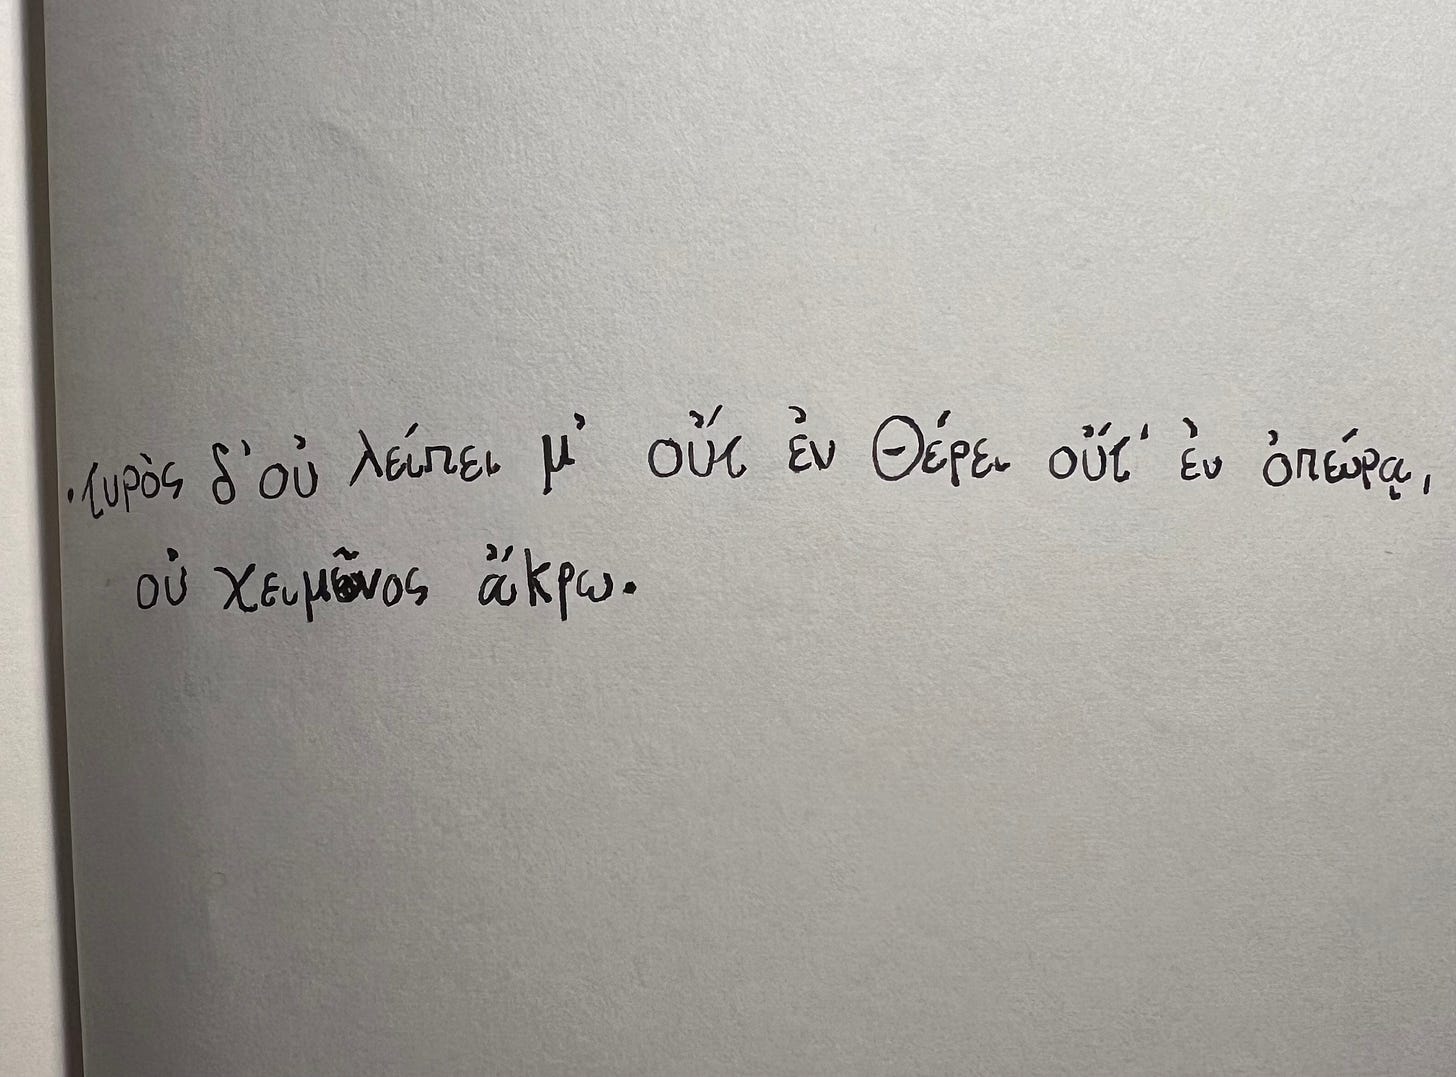 ·τυρὸς δ' οὐ λείπει μ' οὔτ ἐν θέρει οὔτ' ἐν ὀπεύρᾳ,
οὐ χειμῶνος ἄκρω.